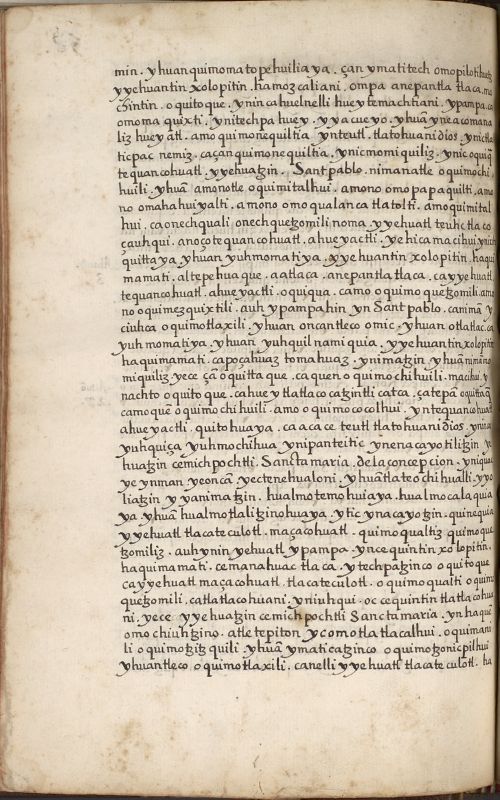 min. yhuan quimomatopehuiliaya. çan ymatitech omopilotihuetz
yyehuantin xolopitin. hamozcaliani. ompa anepantla tlaca. mo
chintin. oquitoque. ynin cahuelnelli huey temachtiani. ypampa. a
omoma quixti. ynitechpa huey. yyacueyo. yhuā yneacomana
liz huey atl. amo quimonequiltia ynteutl. tlatohuani dios. ynictla
ticpac nemiz. caçan quimonequiltia. ynicmomiquiliz. ynicoquiq
tequancohuatl. yyehuatzin. Sant pablo. nimanatle oquimochi
huili. yhuā amonotle oquimitalhui. amono omopapaquilti. amo
no omahahuiyalti. amono omoqualancatlatolti. amo quimital
hui. caonechquali. onechquetzomili noma. yyehuatl teuhctlaco
çauhqui. anoço tequancohuatl. ahueyactli. yehicamacihui ynich
quittaya yhuan yuhmomatiya. yyehuantin xolopitin. haqui
mamati. altepehuaque. aatlaca. anepantlatlaca. cayyehuatl
tequancohuatl. ahueyactli. oquiqua. camo oquimoquetzomili. amo
no oquimezquixtili. auh ypampahin yn Sant pablo. canimā y
ciuhca oquimotlaxili. yhuan oncantleco omic. yhuan otlatlac. ca
yuhmomatiya. yhuan yuhquilnamiquia. yyehuantin xolopitin
haquimamati. capoçahuaz tomahuaz. ynimatzin. yhuā nimāno
miquiliz. yece çā oquittaque. caquen oquimochihuili. macihui. y
nachto oquitoque. cahueytlatlacocatzintli catca. çatepā oquittaq
camoque oquimochihuili. amo oquimococolhui. yntequancohuatl
ahueyactli. quitohuaya. caacace teutl tlatohuani dios. ynma
yuhquiça yuhmochihua ynipanteitic ynenacayotilitzin ye
huatzin cemichpochtli. Sancta maria. de la concepcion. yniquac
yeynman yeoncā yectenehualoni. yhuā tlateochihualli. yyo
liatzin yyanimatzin. hualmotemohuiaya. hualmocalaquia
ya yhuā hualmotlalitzinohuaya. ytic ynacayotzin. quinequia
yyehuatl tlacateculotl. maçacohuatl. quimoqualtiz quimoque
tzomiliz. auh ynin yehuatl ypampa. yncequintin xolopitin.
haquimamati. cemanahuac tlaca. ytechpatzinco oquitoque
cayyehuatl maçacohuatl. tlacateculotl. oquimoqualti oquimo
quetzomili. catlatlacohuani. yniuhqui. oc cequintin tlatlacohua
ni. yece yyehuatzin cemichpochtli Sancta maria. ynhaque
omochiuhtzino. atle tepiton ycomotlatlacalhui. oquimani
li oquimotzitzquili yhuā ymaticatzinco oquimotzonicpilhui
yhuan tleco. oquimotlaxili. canelli yyehuatl tlacateculotl. ha